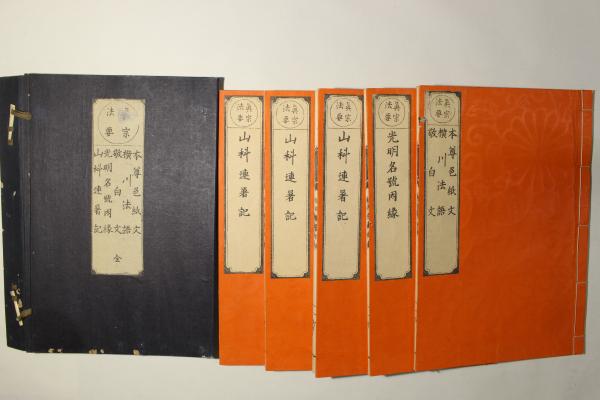 眞宗
法要
本尊色紙文
横川法語
敬白文
眞宗
法要
光明名號因縁
眞宗
法要
山科連署記
眞宗
法要
山科連署記
眞宗
法要
山科連署記
宗
法要
本尊色紙文
横川法語
敬白文
光明名號因縁
山科連署記
全